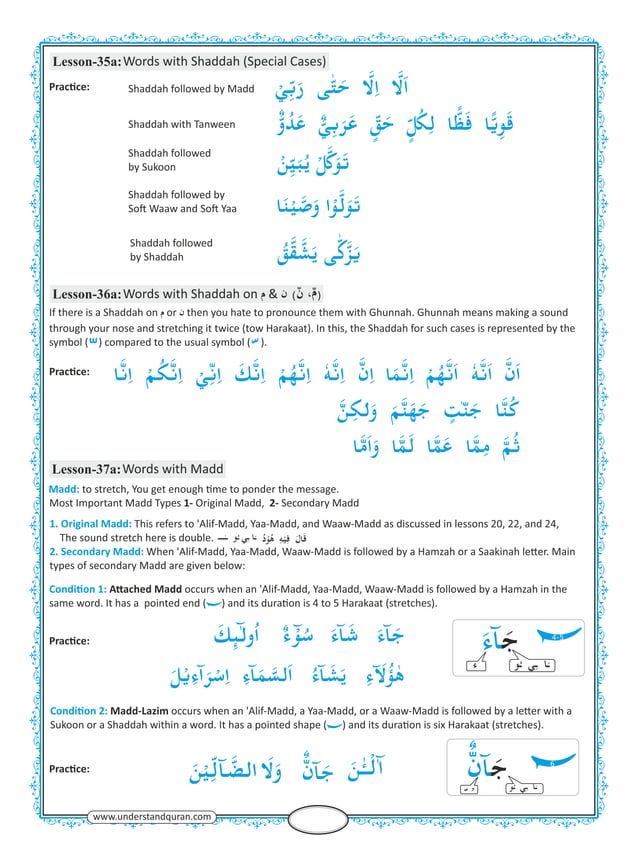 Lesson-35a: Words with Shaddah (Special Cases)
Practice: Shaddah followed by Madd أَلَّا إِلَّا حَتّٰى رَبِّيْ
Shaddah with Tanween قَوِيًّا فَظًّا لِكُلٍّ حَقٍّ عَرَبِيٌّ عَدُوٌّ
Shaddah followed
by Sukoon تَوَكَّلْ يُبَيِّنْ
Shaddah followed by
Soft Waaw and Soft Yaa تَوَلَّوْا وَصَّيْنَا
Shaddah followed
by Shaddah يَزَّكّٰى يَشَّقَّقُ
Lesson-36a: Words with Shaddah on م & ن (نّ ،مّ)
If there is a Shaddah on م or ن then you hate to pronounce them with Ghunnah. Ghunnah means making a sound
through your nose and stretching it twice (tow Harakaat). In this, the Shaddah for such cases is represented by the
symbol ( ّ ) compared to the usual symbol ( ّ ).
Practice: أَنَّ أَنَّهٗ أَنَّهُمْ إِنَّمَا إِنَّ إِنَّهٗ إِنَّهُمْ إِنَّكَ إِنِّيْ إِنَّكُمْ إِنَّا
كُنَّا جَنّٰتٍ جَهَنَّمَ وَلٰكِنَّ
ثُمَّ مِمَّا عَمَّا لَمَّا وَأَمَّا
Lesson-37a: Words with Madd
Madd: to stretch, You get enough time to ponder the message.
Most Important Madd Types 1- Original Madd, 2- Secondary Madd
1. Original Madd: This refers to 'Alif-Madd, Yaa-Madd, and Waaw-Madd as discussed in lessons 20, 22, and 24,
The sound stretch here is double. — ـَا ـِي ـُو قَالَ فِيْهِ هُوْدُ
2. Secondary Madd: When 'Alif-Madd, Yaa-Madd, Waaw-Madd is followed by a Hamzah or a Saakinah letter. Main
types of secondary Madd are given below:
Condition 1: Attached Madd occurs when an 'Alif-Madd, Yaa-Madd, Waaw-Madd is followed by a Hamzah in the
same word. It has a pointed end ( ) and its duration is 4 to 5 Harakaat (stretches).
Practice: جَآءَ شَآءَ سُوْٓءٌ أُولٰٓئِكَ
هٰٓؤُلَآءِ يَشَآءُ السَّمَآءِ إِسْرَآءِيْلَ
جَآءَ 4-5
ء ـَا ـِي ـُو
Condition 2: Madd-Lazim occurs when an 'Alif-Madd, a Yaa-Madd, or a Waaw-Madd is followed by a letter with a
Sukoon or a Shaddah within a word. It has a pointed shape ( ) and its duration is six Harakaat (stretches).
Practice: آلْـٰٔنَ جَآنٌّ وَلَا الضَّآلِّيْنَ
جَآنٌّ 6
ـَا ـِي ـُو
www.understandquran.com